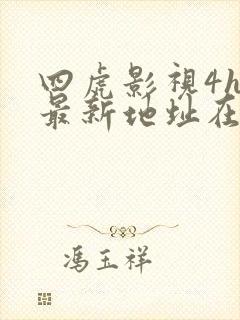 四虎影視4h
最新地址在
馮玉祥